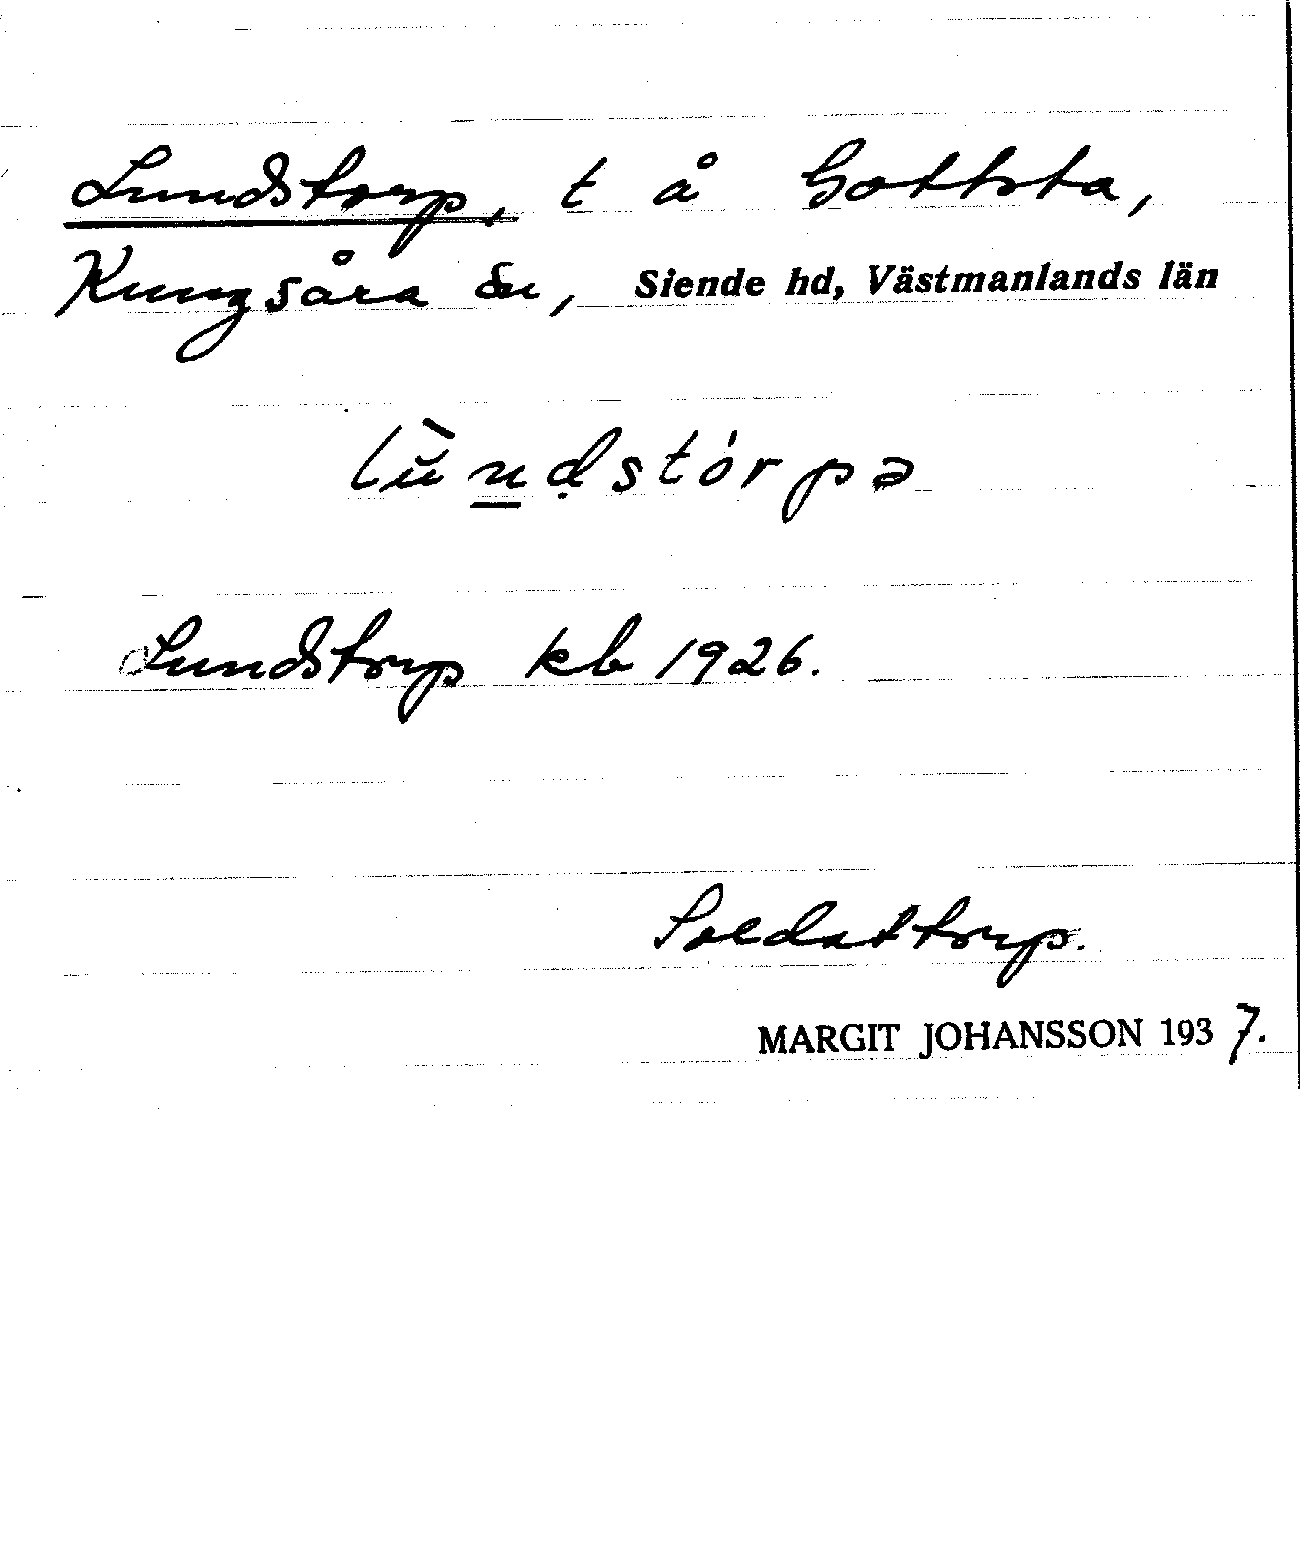 Lundstorp, t å Gottsta,
Kungsåra sn, Siende hd, Västmanlands län
lu̇̀n̲ḍstórpə
Lundstorp kb 1926.
Soldattorp.
MARGIT JOHANSSON 1937.